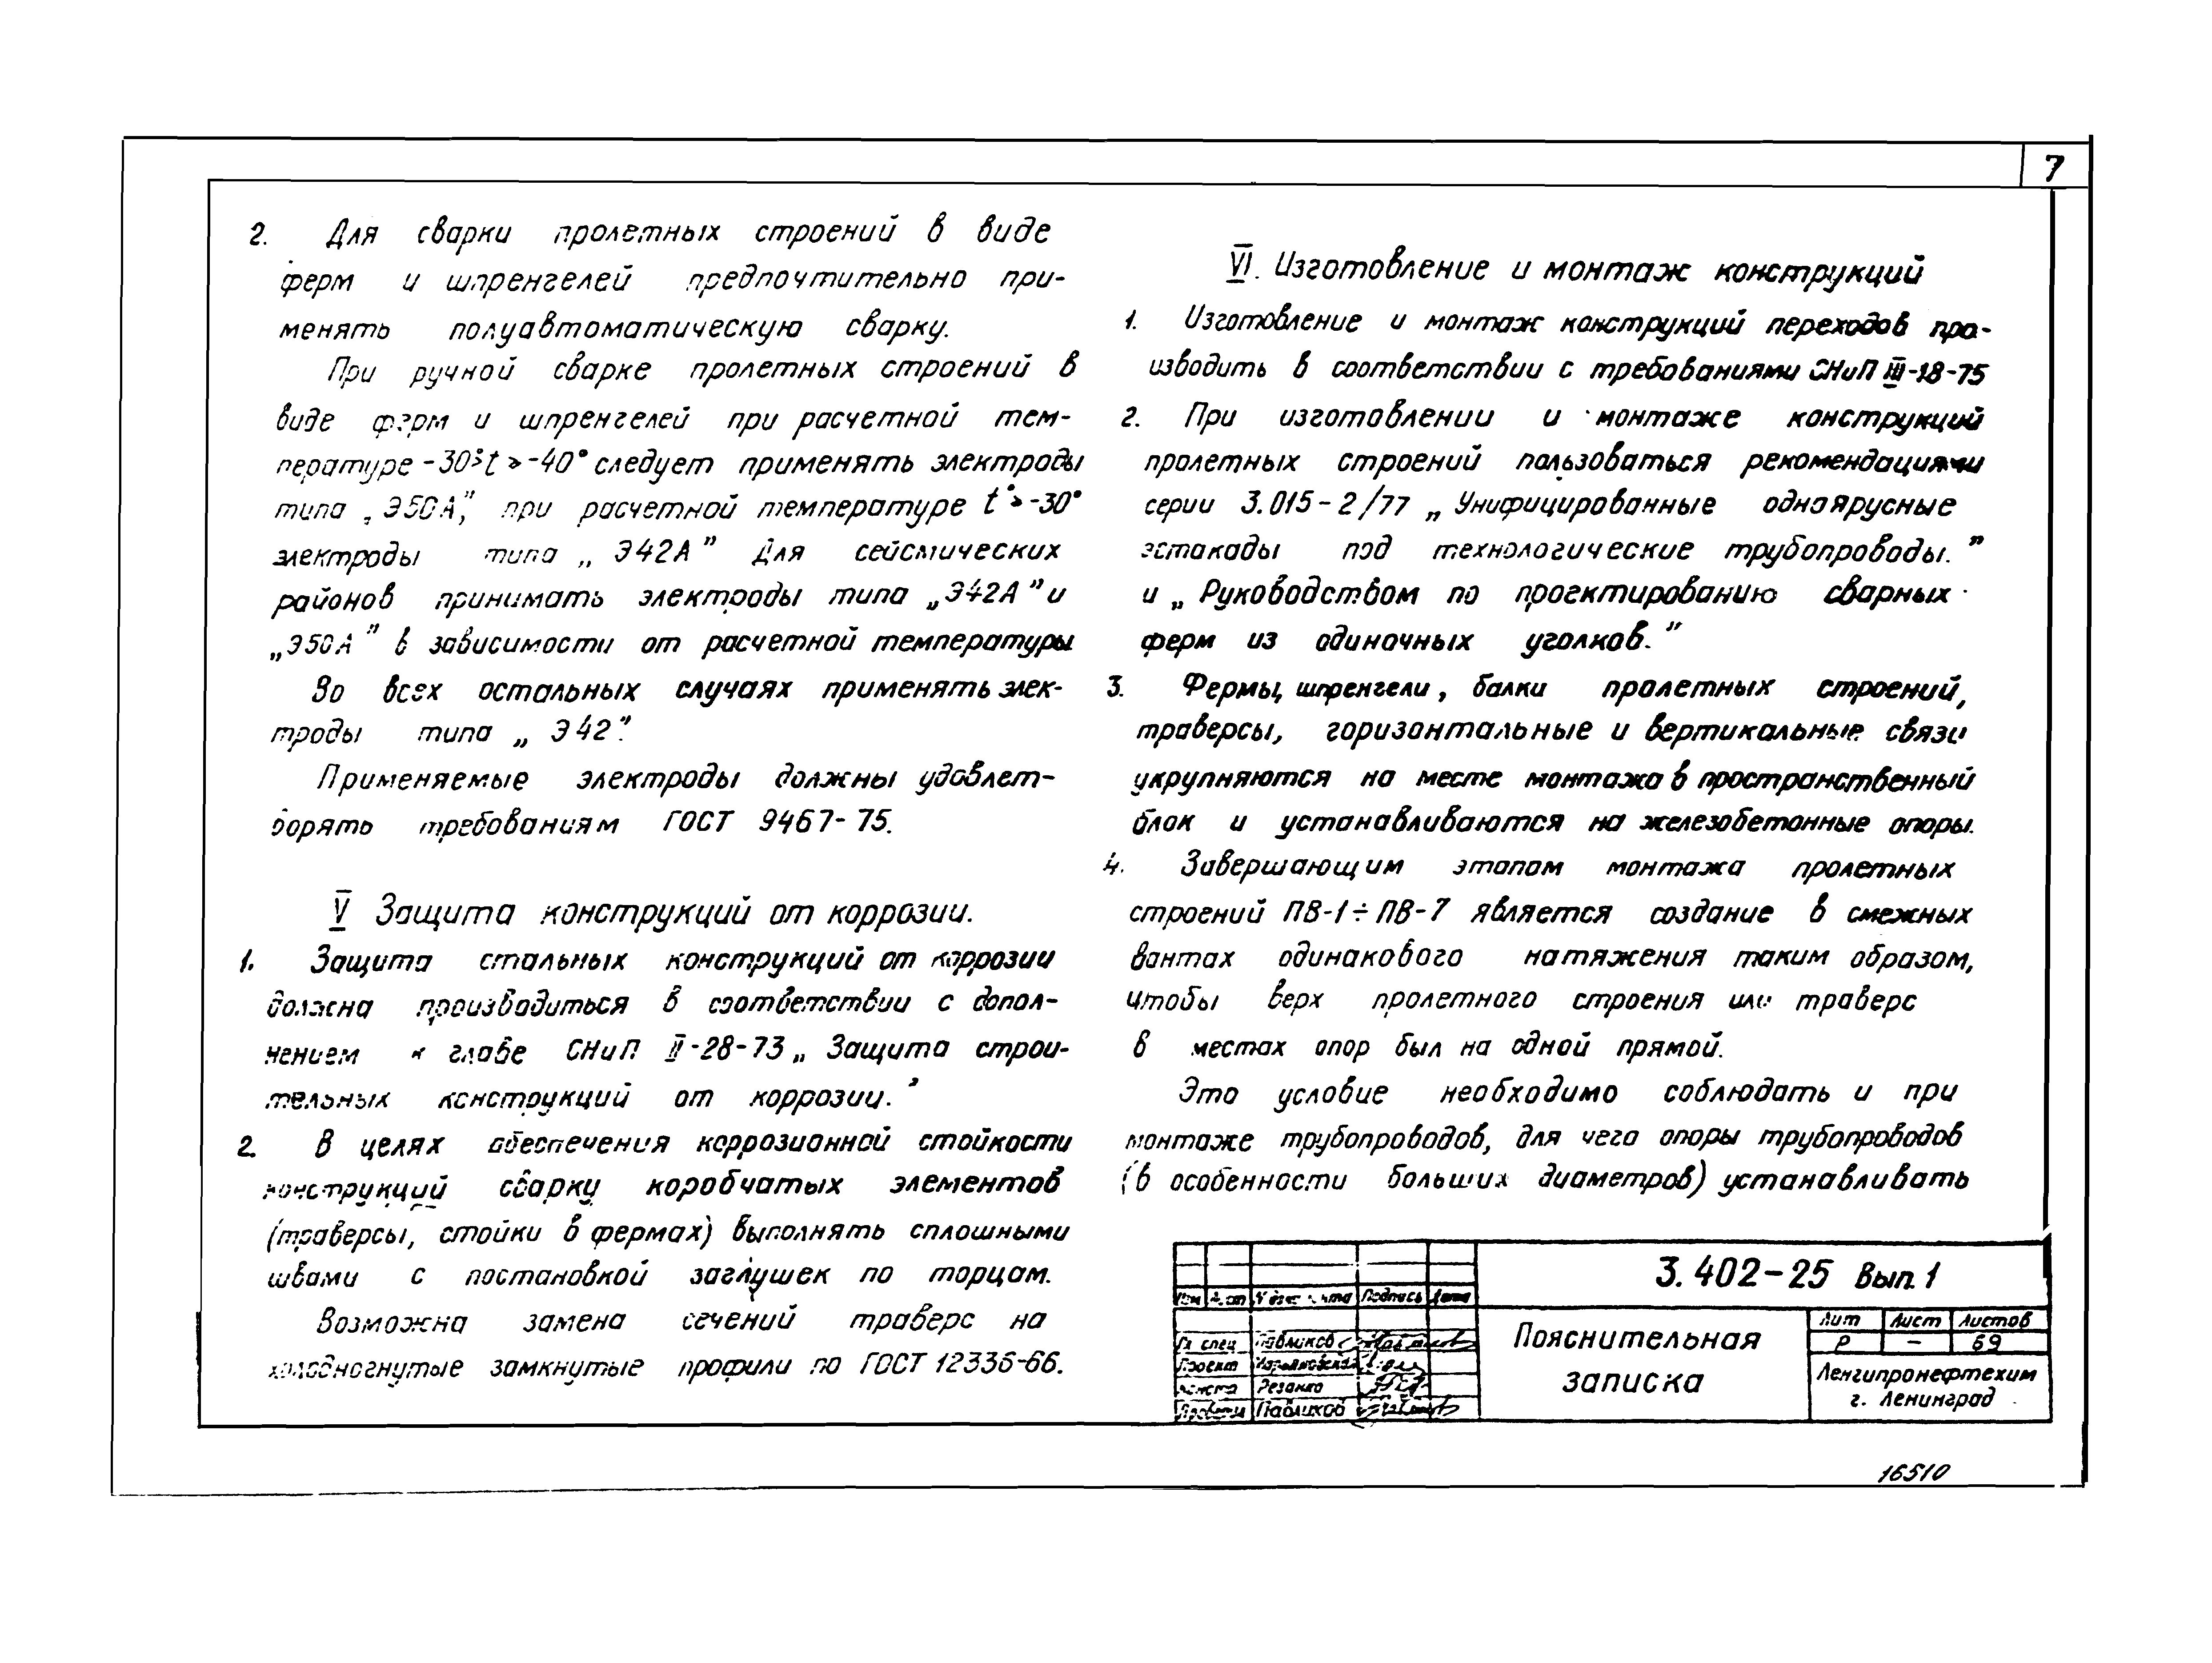 7
2. Для сварки пролетных строений в виде
ферм и шпренгелей предпочтительно при-
менять полуавтоматическую сварку.
При ручной сварке пролетных строений в
виде ферм и шпренгелей при расчетной тем-
пературе -30°>t>-40° следует применять электроды
типа „Э50А", при расчетной температуре t°>-30°
электроды типа „Э42А" Для сейсмических
районов принимать электроды типа „Э42А" и
„Э50А" в зависимости от расчетной температуры
Во всех остальных случаях применять элек-
троды типа „Э42".
Применяемые электроды должны удовлет-
ворять требованиям ГОСТ 9467-75.
V Защита конструкций от коррозии.
1. Защита стальных конструкций от коррозии
должна производиться в соответствии с допол-
нением к главе СНиП II-28-73 „Защита строи-
тельных конструкций от коррозии."
2. В целях обеспечения коррозионной стойкости
конструкций сварку коробчатых элементов
(траверсы, стойки в фермах) выполнять сплошными
швами с постановкой заглушек по торцам.
Возможна замена сечений траверс на
холодногнутые замкнутые профили по ГОСТ 12336-66.
VI. Изготовление и монтаж конструкций
1. Изготовление и монтаж конструкций переходов про-
изводить в соответствии с требованиями СНиП III-18-75
2. При изготовлении и монтаже конструкций
пролетных строений пользоваться рекомендациями
серии 3.015-2/77 „Унифицированные одноярусные
эстакады под технологические трубопроводы."
и „Руководством по проектированию сварных
ферм из одиночных уголков."
3. Фермы, шпренгели, балки пролетных строений,
траверсы, горизонтальные и вертикальные связи
укрупняются на месте монтажа в пространственный
блок и устанавливаются на железобетонные опоры.
4. Завершающим этапом монтажа пролетных
строений ПВ-1÷ПВ-7 является создание в смежных
вантах одинакового натяжения таким образом,
чтобы верх пролетного строения или траверс
в местах опор был на одной прямой.
Это условие необходимо соблюдать и при
монтаже трубопроводов, для чего опоры трубопроводов
(в особенности больших диаметров) устанавливать
3.402-25 Вып. 1
Изм Лист Подпись Дата
Гл спец Павликов
Проект
Резанко
Павликов
Пояснительная
записка
Лит Лист Листов
Р - 69
Ленгипронефтехим
г. Ленинград
16510